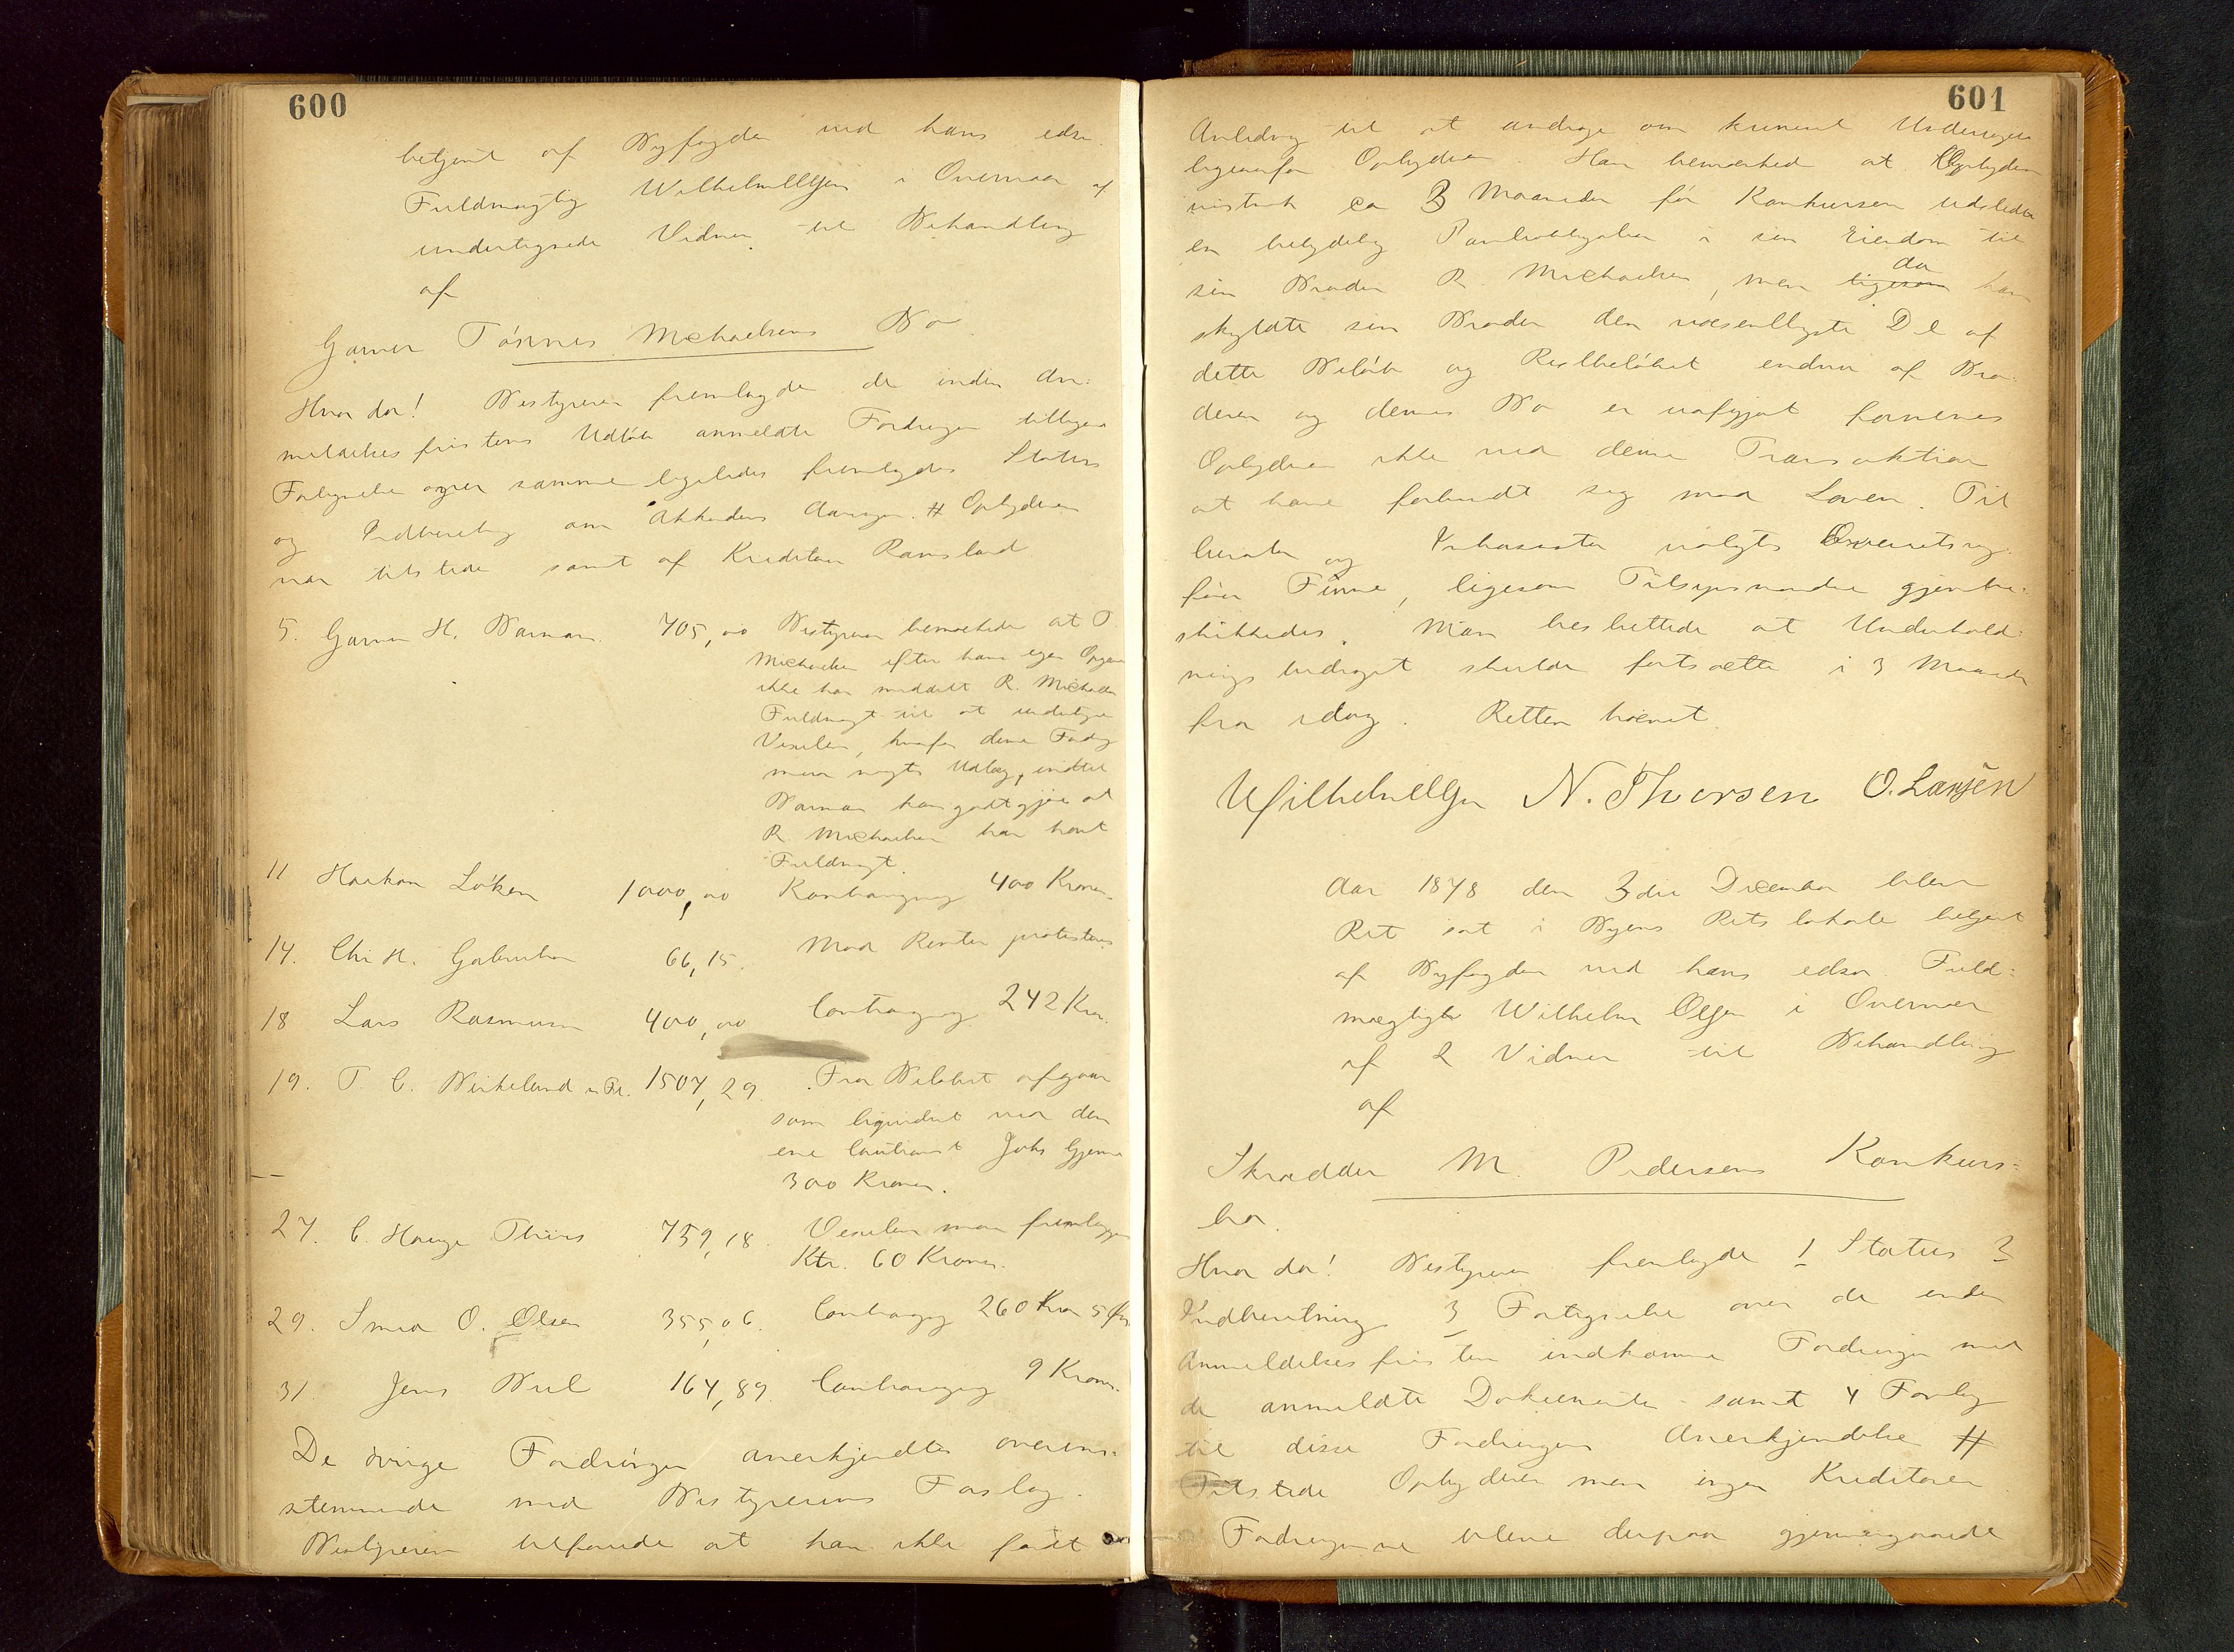 600
betjent af Byfogden ved hans edsv.
Fuldmægtig Wilhelm Olsen i Overvær af
undertegnede Vidner til Behandling
af
Garver Tønnes Michaelsens Bo
Hvor da! Bestyreren fremlagde de inden An-
meldelsesfristens Udløb anmeldte Fordringer tilligemed
Fortegnelse over samme ligeledes fremlagdes Status
og Indberetning om Akkordens Aarsager. # Opbyderen
var tilstede samt af Kreditorer Ramsland.
5. Garver H. Naman 705,00 Bestyreren bemærkede at T.
Michaelsen efter hans egen Opgave
ikke har meddelt R. Michaelsen
Fuldmagt til at undertegne
Vexelen, hvorfor denne Fordring
maa nægtes Udlæg, indtil
Naman kan godtgjøre at
R. Michaelsen har havt
Fuldmagt.
11 Haakon Løken 1000,00 Kontraregning 400 Kroner.
14. Chr. H. 66,15. Mod Renter protesteres
18 Lars Rasmussen 400,00 Contraregning 242 Kr.
19. T. C. Birkeland 1507,29. Fra Beløbet afgaar
som ligvideret ved den
ene Cautionist Johs Gjerne
300 Kroner.
27. C. Hauge Thiis 759,18. Vexelen maa fremlægges
Ktr. 60 Kroner.
29. Smed O. Olsen 355,06. Contraregning 260 Kroner 5 Øre
31. Jens Bul 164,89. Contraregning 9 Kroner.
De øvrige Fordringer anerkjendtes overens-
stemmende med Bestyrerens Forslag.
Bestyreren tilføiede at han ikke fandt
601
Anledning til at andrage om kriminel Undersøgelse
ligeoverfor Opbyderen. Han bemærkede at Opbyderen
vistnok ca 3 Maaneder før Konkursen udstedte
en betydelig Panteobligation i sin Eiendom til
sin Broder R. Michaelsen, men ligesom da han
skyldte sin Broder den væsentligste Del af
dette Beløb og Restbeløbet endnu af Bro-
deren og dennes Bo er uafgjort formenes
Opbyderen ikke ved denne Transaktion
at have forbrudt sig mod Loven. Til
Kurator og Inkassator valgtes Overretssag-
fører Finne, ligesom Tilsynsmanden gjenbe-
skikkedes. Man besluttede at Underhold-
ningsbidraget skulde fortsætte i 3 Maaneder
fra idag. Retten hævet.
Wilhelm Olsen N. Thorsen O. Larsen
Aar 1878 den 3die December blev
Ret sat i Byens Retslokale betjent
af Byfogden ved hans edsv. Fuld-
mægtige Wilhelm Olsen i Overvær
af 2 Vidner til Behandling
af
Skrædder M. Pedersens Konkurs-
bo.
Hvor da! Bestyreren fremlagde 1 Status 2
Indberetning 3 Fortegnelse over de inden
Anmeldelsesfristen indkomne Fordringer med
de anmeldte Dokumenter samt 4 Forslag
til disse Fordringers Anerkjendelse #
Tilstede Opbyderen men ingen Kreditorer
Fordringerne bleve derpaa gjennemgaaede